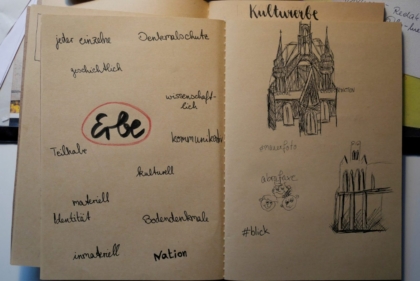 jeder einzelne
Denkmalschutz
geschichtlich
wissenschaft-
lich
Erbe
kommunikativ
Teilhabe
kulturell
materiell
Identität
Bodendenkmale
immateriell
Nation
Kulturerbe
#blick